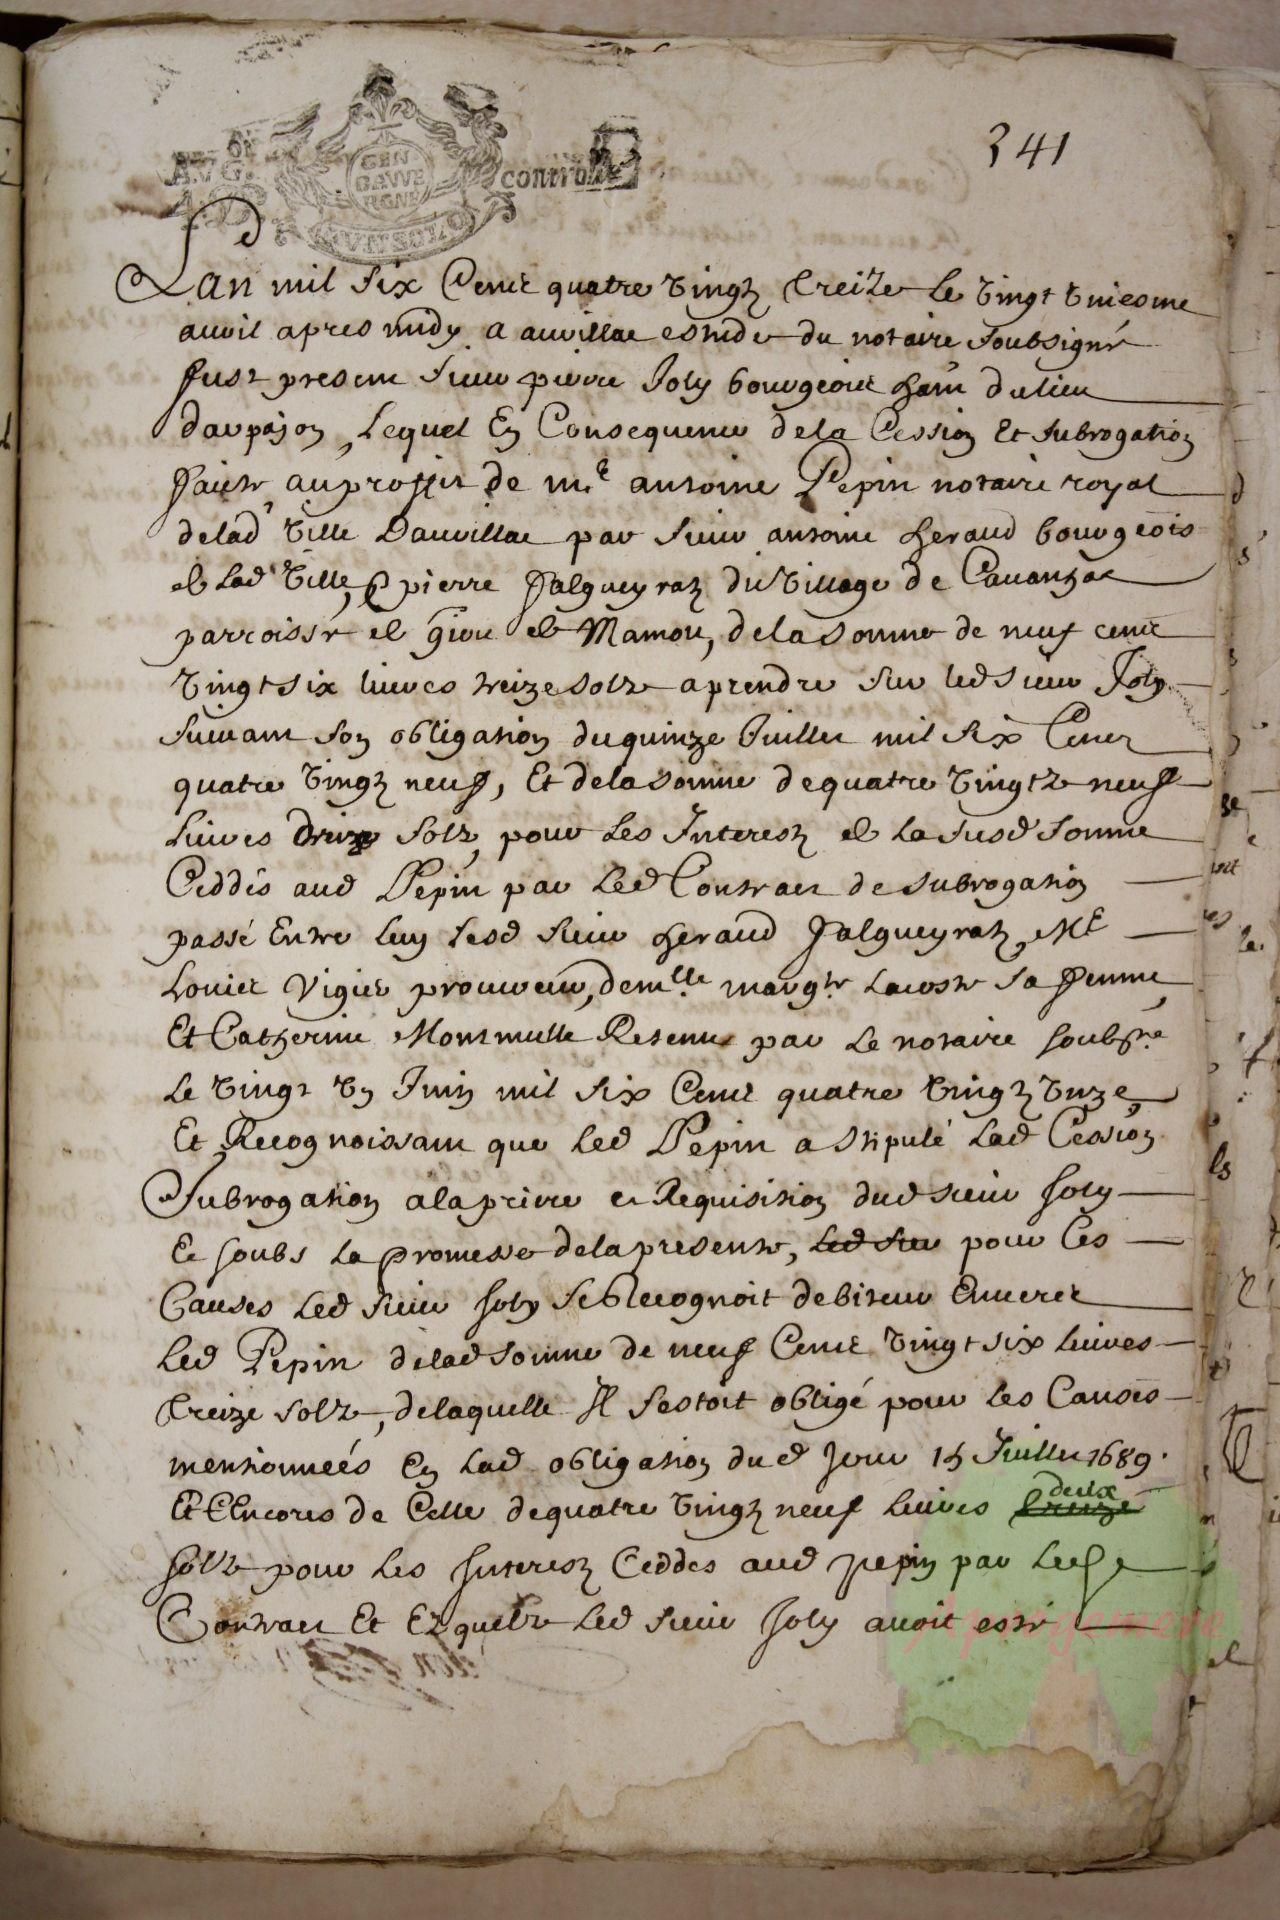 341
GEN
DAWE
RGNE
UN SOL
control
Lan mil six Cent quatre vingtz treize Le vingt vniesme
auril apres midy a aurillac estude du notaire soubsigné
fust present sieur pierre Joly bourgeois hant du lieu
darpajon, Lequel En Consequence dela Cession Et subrogation
faicte au proffit de mr antoine Pepin notaire royal
delad ville Daurillac par sieur antoine Geraud bourgeois
de lad ville, & pierre falgueyratz du village de Cauanhac
parroisse de giou de Mamou, dela somme de neuf cent
vingt six liures treize solz a prendre sur led sieur Joly
suiuant son obligation du quinze Juillet mil six Cent
quatre vingtz neuf, Et dela somme de quatre vingtz neuf
Liures solz, pour Les Interestz de La susd somme
Ceddés aud Pepin par Led Contract de subrogation
passé Entre luy Lesd sieur Geraud falgueyratz, Me
Louis Vigier procureur, demlle margte Lacoste sa femme
Et Catherine Montmulle Retenu par Le notaire soubsné
Le vingt vn Juin mil six Cent quatre vingtz vnze
Et Recognoissant que Led Pepin a stipulé Lad Cession
Subrogation a la priere et Requisition dud sieur Joly
Et soubs La promesse dela presente, Led sieur pour Ces
Causes Led sieur Joly se Recognoit debiteur Enuers
Led Pepin delad somme de neuf Cent vingt six Liures
treize solz, de laquelle Il sestoit obligé pour Les Causes
mentionneés En Lad obligation dud Jour 15 Juillet 1689.
Et Encores de Celle de quatre vingtz neuf Liures treize
deux
solz pour Les Interestz Ceddes aud pepin par Led
Contract Et Ezquelz Led sieur Joly auoit esté